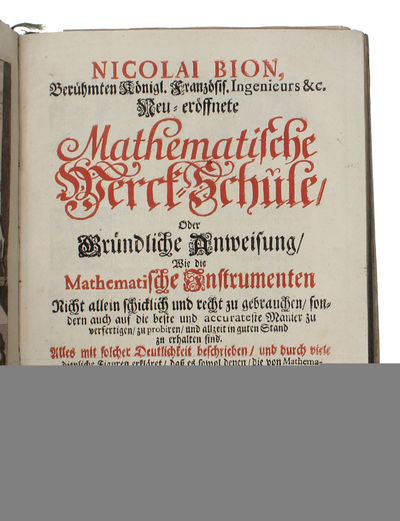 NICOLAI BION,
Berühmten Königl. Französis. Ingenieurs &c.
Neu-eröffnete
Mathematische
Werck-Schule/
Oder
Gründliche Anweisung/
Wie die
Mathematische Instrumenten
Nicht allein schicklich und recht zu gebrauchen/ son-
dern auch auf die beste und accurateste Manier zu
verfertigen/ zu probiren/ und allzeit in guten Stand
zu erhalten sind.
Alles mit solcher Deutlichkeit beschrieben/ und durch viele
dienliche Figuren erkläret/ daß es sowol denen/ die von Mathema-